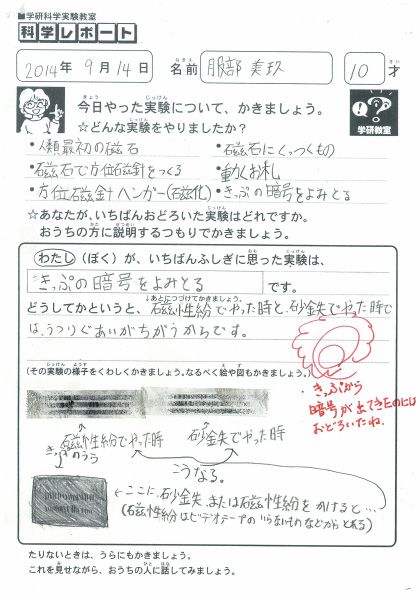 ■学研科学実験教室
科学レポート
2014年 9月14日 名前 服部 美玖 10才
今日やった実験について、かきましょう。
☆どんな実験をやりましたか?
・人類最初の磁石 ・磁石にくっつくもの
・磁石で方位磁針をつくる ・動くお札
・方位磁針ハンガー(石磁化) ・きっぷの暗号をよみとる
学研教室
☆あなたが、いちばんおどろいた実験はどれですか。
おうちの方に説明するつもりでかきましょう。
わたし(ぼく)が、いちばんふしぎに思った実験は、
きっぷの暗号をよみとる です。
↓あとにつづけてかきましょう。
どうしてかというと、磁性紛でやった時と、砂金失でやった時で
は、うつりぐあいがちがうからです。
(その実験の様子をくわしくかきましょう。なるべく絵や図もかきましょう。)
・きっぷから
暗号が出てきたのには
おどろいたね。
磁性紛でやった時 砂金失でやった時
きっぷのうら
こうなる。
←ここに、砂金失、または磁性紛をかけると…
(磁性紛はビデオテープのいらないものなどからとれる)
たりないときは、うらにもかきましょう。
これを見せながら、おうちの人に話してみましょう。